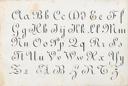 Aa Bb Cc Dd Ee Ff
Gg Hh Ii Jj Kk Ll Mm
Nn Oo Pp Qq Rr Ss
Tt Uu Vv Ww Xx Yy
Zz